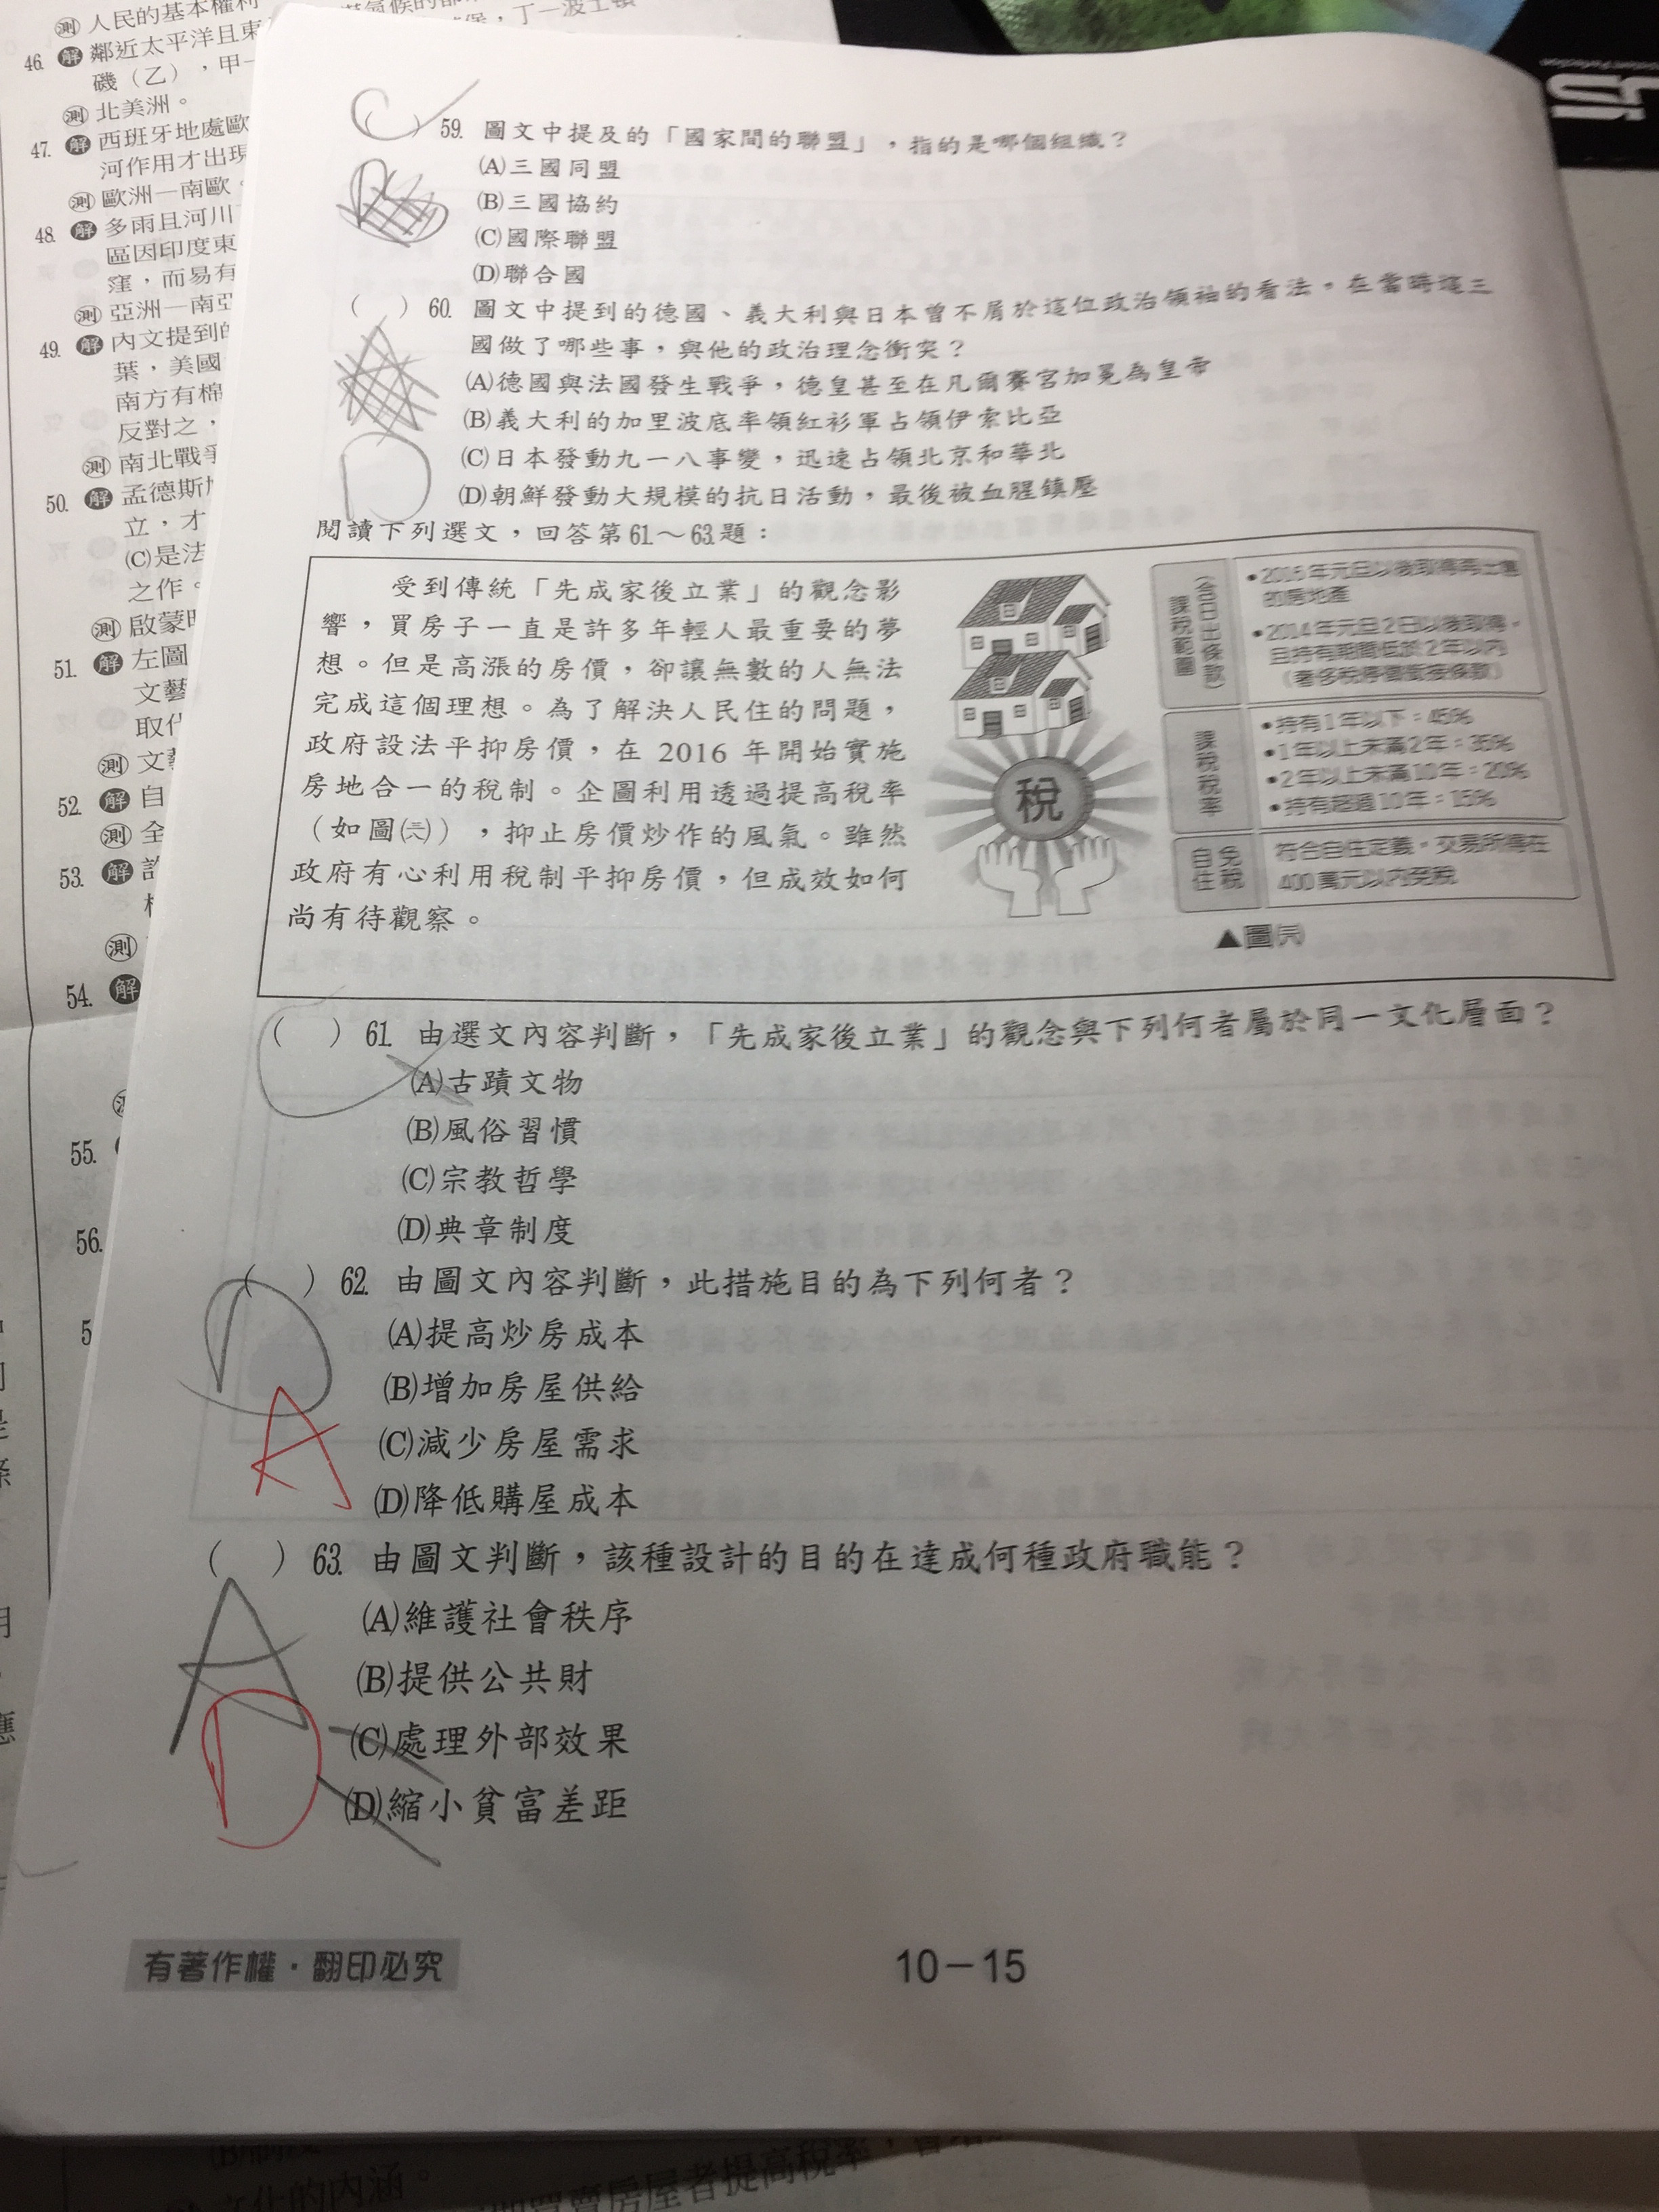 測 人民的基本權利
46. 解 鄰近太平洋且東
磯（乙），甲一
測 北美洲。
47. 解 西班牙地處歐
河作用才出現
測 歐洲—南歐。
48. 解 多雨且河川
區因印度東
窪，而易有
測 亞洲—南亞
49. 解 內文提到的
葉，美國
南方有棉
反對之，
測 南北戰爭
50. 解 孟德斯
立，才
(C)是法
之作。
測 啟蒙時
51. 解 左圖
文藝
取代
測 文藝
52. 解 自
測 全
53. 解
測
54. 解
55.
56.
5
C
(　) 59. 圖文中提及的「國家間的聯盟」，指的是哪個組織？
(A)三國同盟
(B)三國協約
(C)國際聯盟
(D)聯合國
(　) 60. 圖文中提到的德國、義大利與日本曾不屑於這位政治領袖的看法。在當時這三
國做了哪些事，與他的政治理念衝突？
(A)德國與法國發生戰爭，德皇甚至在凡爾賽宮加冕為皇帝
(B)義大利的加里波底率領紅衫軍占領伊索比亞
(C)日本發動九一八事變，迅速占領北京和華北
(D)朝鮮發動大規模的抗日活動，最後被血腥鎮壓
D
閱讀下列選文，回答第61～63題：
受到傳統「先成家後立業」的觀念影
響，買房子一直是許多年輕人最重要的夢
想。但是高漲的房價，卻讓無數的人無法
完成這個理想。為了解決人民住的問題，
政府設法平抑房價，在 2016 年開始實施
房地合一的稅制。企圖利用透過提高稅率
（如圖(三六)），抑止房價炒作的風氣。雖然
政府有心利用稅制平抑房價，但成效如何
尚有待觀察。
稅
課稅範圍
（含日出條款）
•2016年元旦以後取得再出售
的房地產
•2014年元旦2日以後取得，
且持有期間低於2年以內
（奢侈稅停徵銜接條款）
課稅稅率
•持有1年以下：45%
•1年以上未滿2年：35%
•2年以上未滿10年：20%
•持有超過10年：15%
自住
免稅
符合自住定義，交易所得在
400萬元以內免稅
▲圖(三六)
(　) 61. 由選文內容判斷，「先成家後立業」的觀念與下列何者屬於同一文化層面？
(A)古蹟文物
(B)風俗習慣
(C)宗教哲學
(D)典章制度
C
(　) 62. 由圖文內容判斷，此措施目的為下列何者？
(A)提高炒房成本
(B)增加房屋供給
(C)減少房屋需求
(D)降低購屋成本
D
A
(　) 63. 由圖文判斷，該種設計的目的在達成何種政府職能？
(A)維護社會秩序
(B)提供公共財
(C)處理外部效果
(D)縮小貧富差距
A
D
有著作權．翻印必究
10－15
文化的內涵。
買賣房屋者提高稅率，